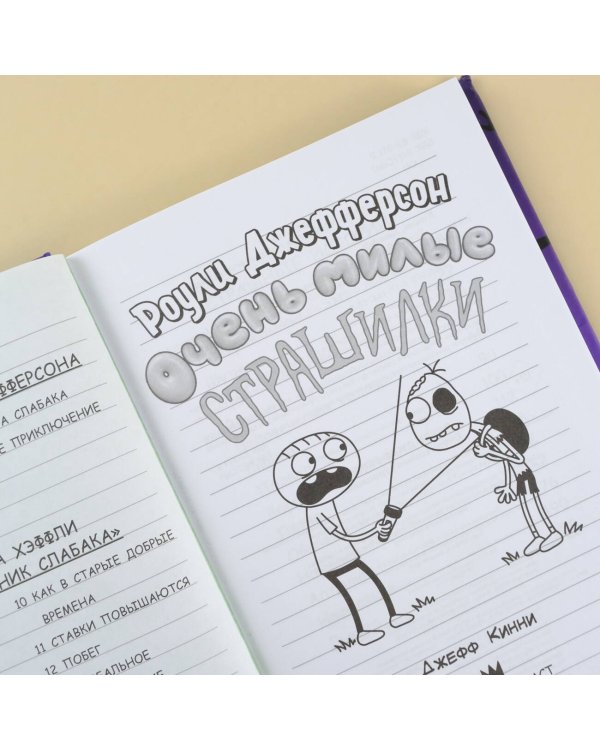 ФФЕРСОНА
А СЛАБАКА
Е ПРИКЛЮЧЕНИЕ
А ХЭФФЛИ
НИК СЛАБАКА»
10 КАК В СТАРЫЕ ДОБРЫЕ
ВРЕМЕНА
11 СТАВКИ ПОВЫШАЮТСЯ
12 ПОБЕГ
БАЛЬНОЕ
Роули Джефферсон
Очень милые
СТРАШИЛКИ
Джефф Кинни
АСТ